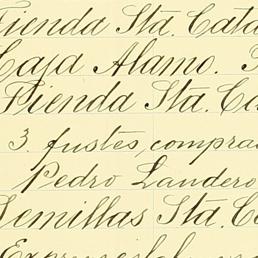 Tienda Sta. Cata
Caja Alamo.
Tienda Sta. Ca
3 fustes, compra
Pedro Landero
Semillas Sta. Ca